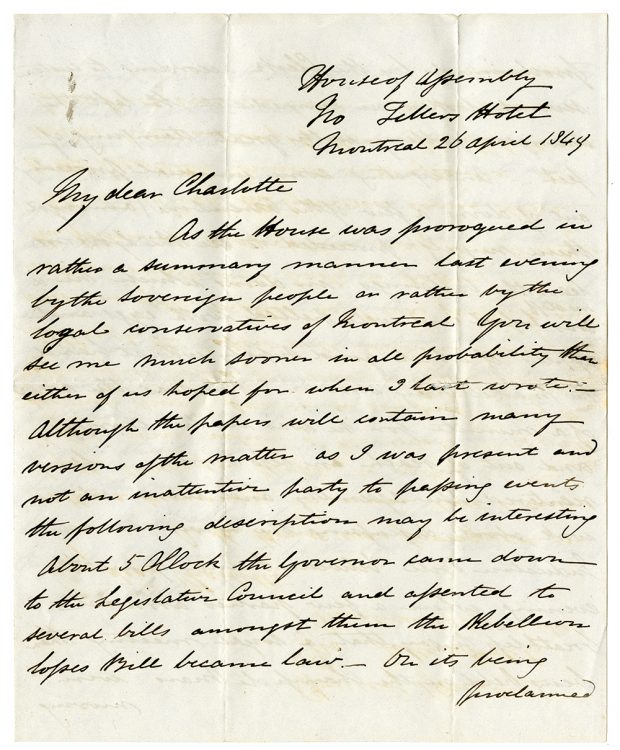 House of Assembly
No Tellers Hotel
Montreal 26 April 1849
My dear Charlotte
As the House was prorogued in
rather a summary manner last evening
by the Sovereign people or rather by the
loyal conservatives of Montreal You will
see me much sooner in all probability than
either of us hoped for when I last wrote.—
Although the papers will contain many
versions of the matter as I was present and
not an inattentive party to passing events
the following description may be interesting
About 5 OClock the Governor came down
to the Legislative Council and assented to
several bills amongst them the Rebellion
losses Bill became law.— On its being
proclaimed